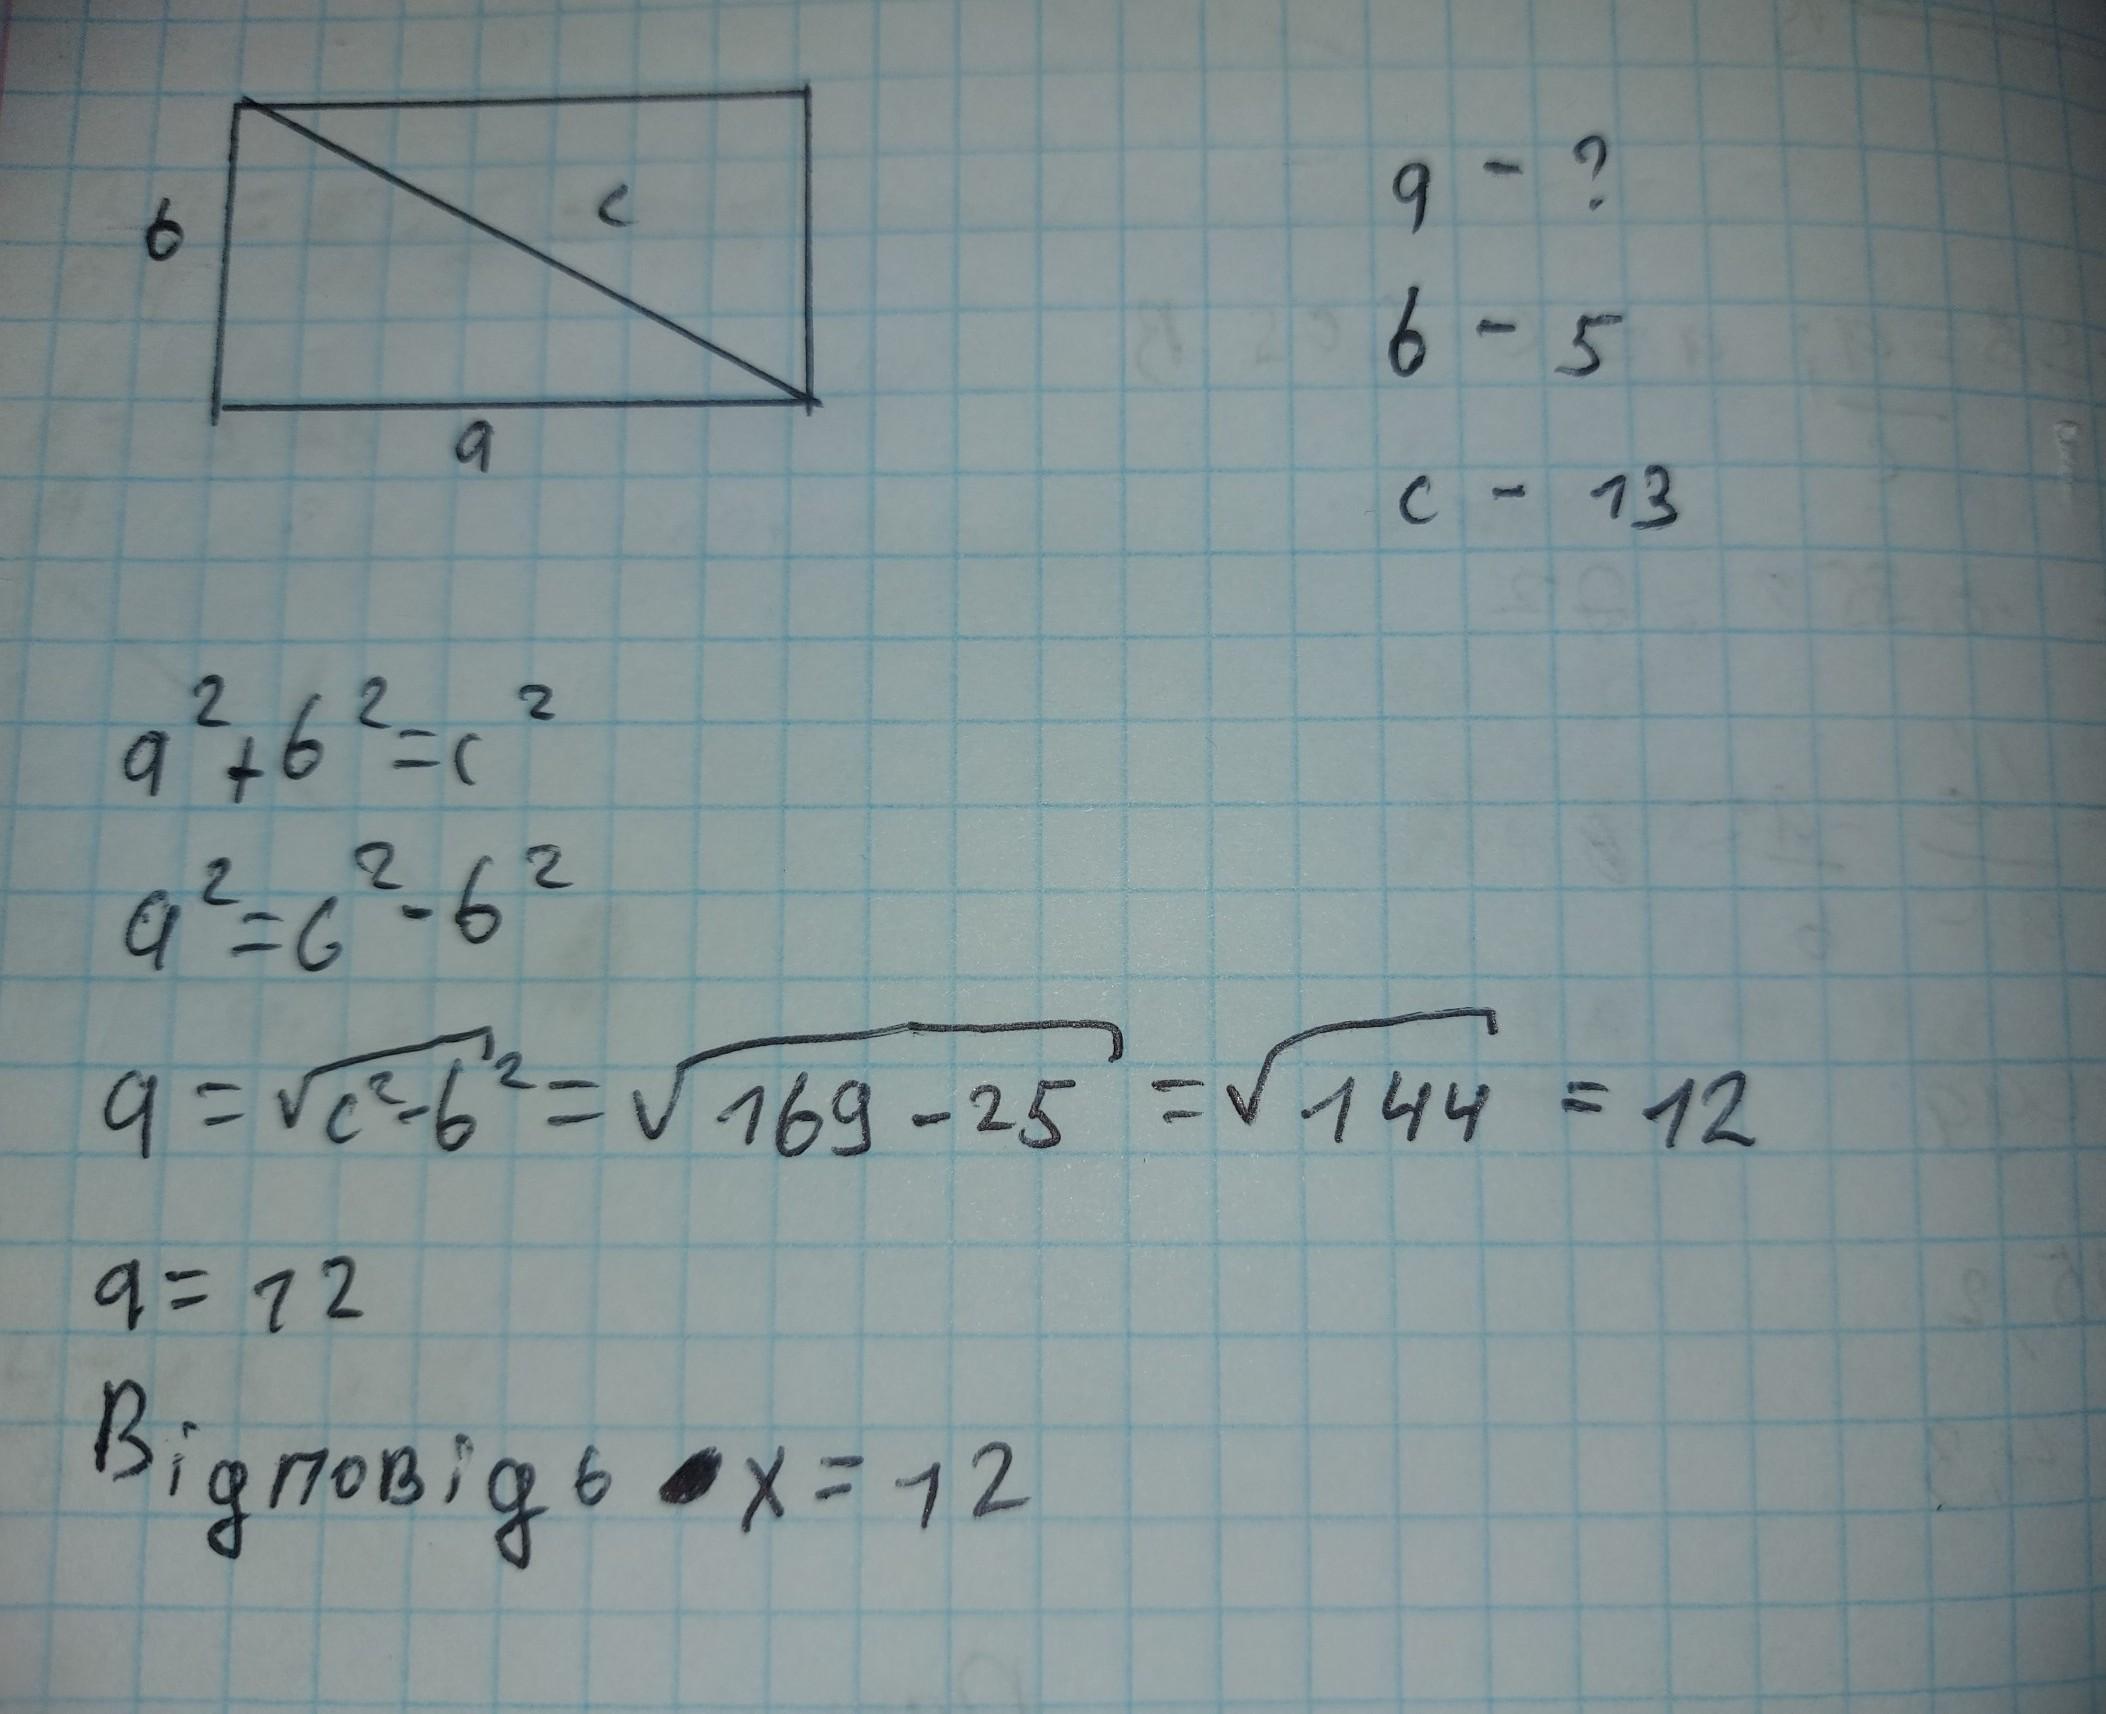 b
c
a
a - ?
b - 5
c - 13
a²+b²=c²
a²=c²-b²
a=√c²-b²=√169-25=√144=12
a=12
Відповідь x=12